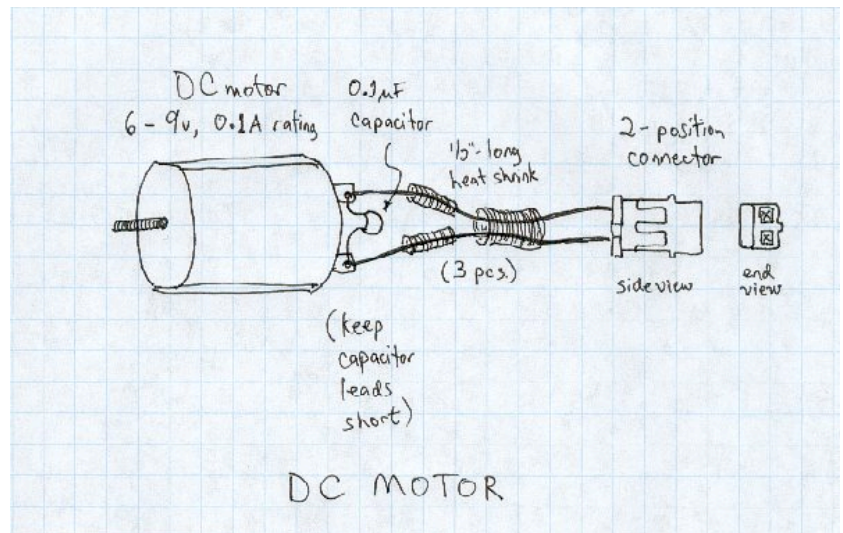 DC motor
6 - 9v, 0.1A rating
0.1µF
capacitor
1/2"-long
heat shrink
2-position
connector
(3 pcs.)
side view
end
view
(keep
capacitor
leads
short)
DC MOTOR